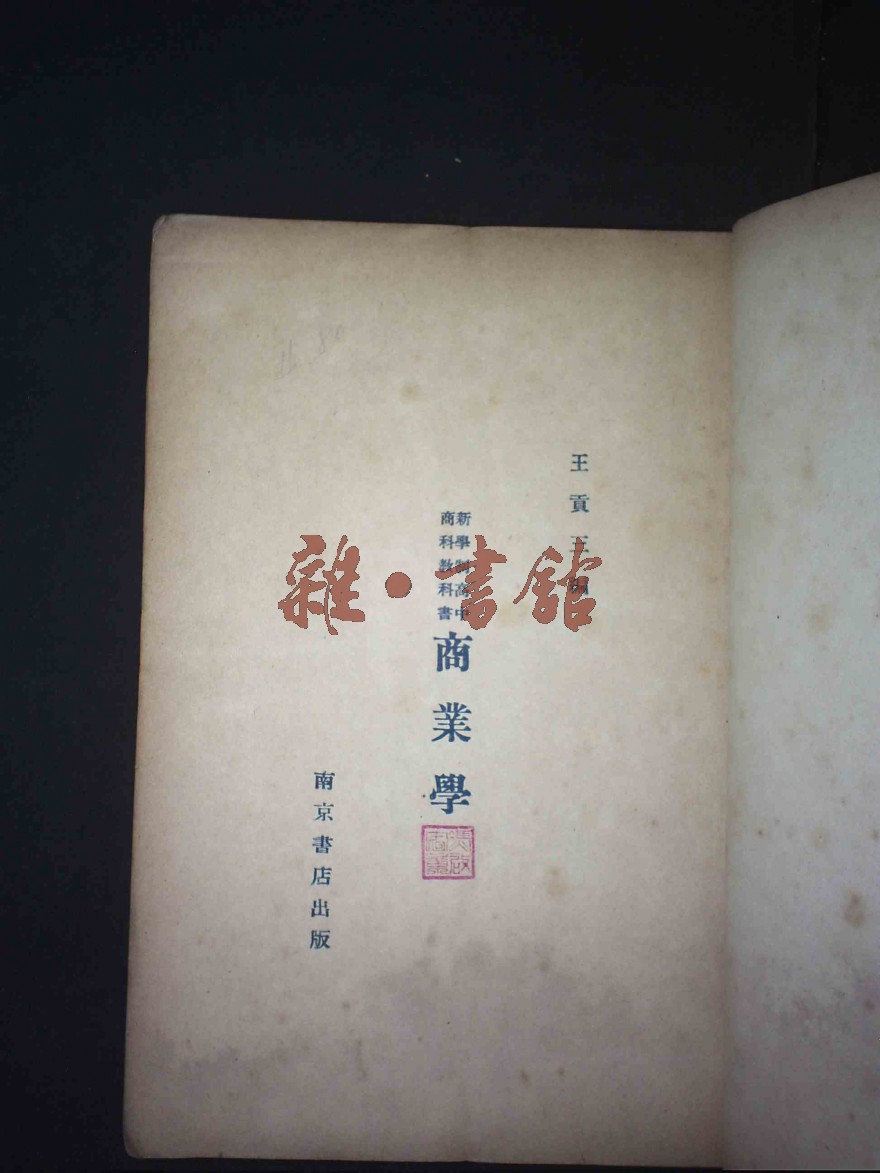 王貢 編
新學制高中
商科教科書
商業學
南京書店出版
雜·書館